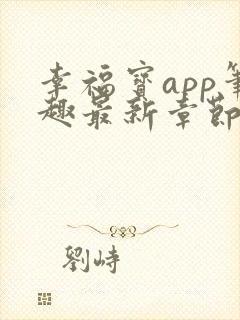 幸福寶app筆
趣最新章節
劉峙